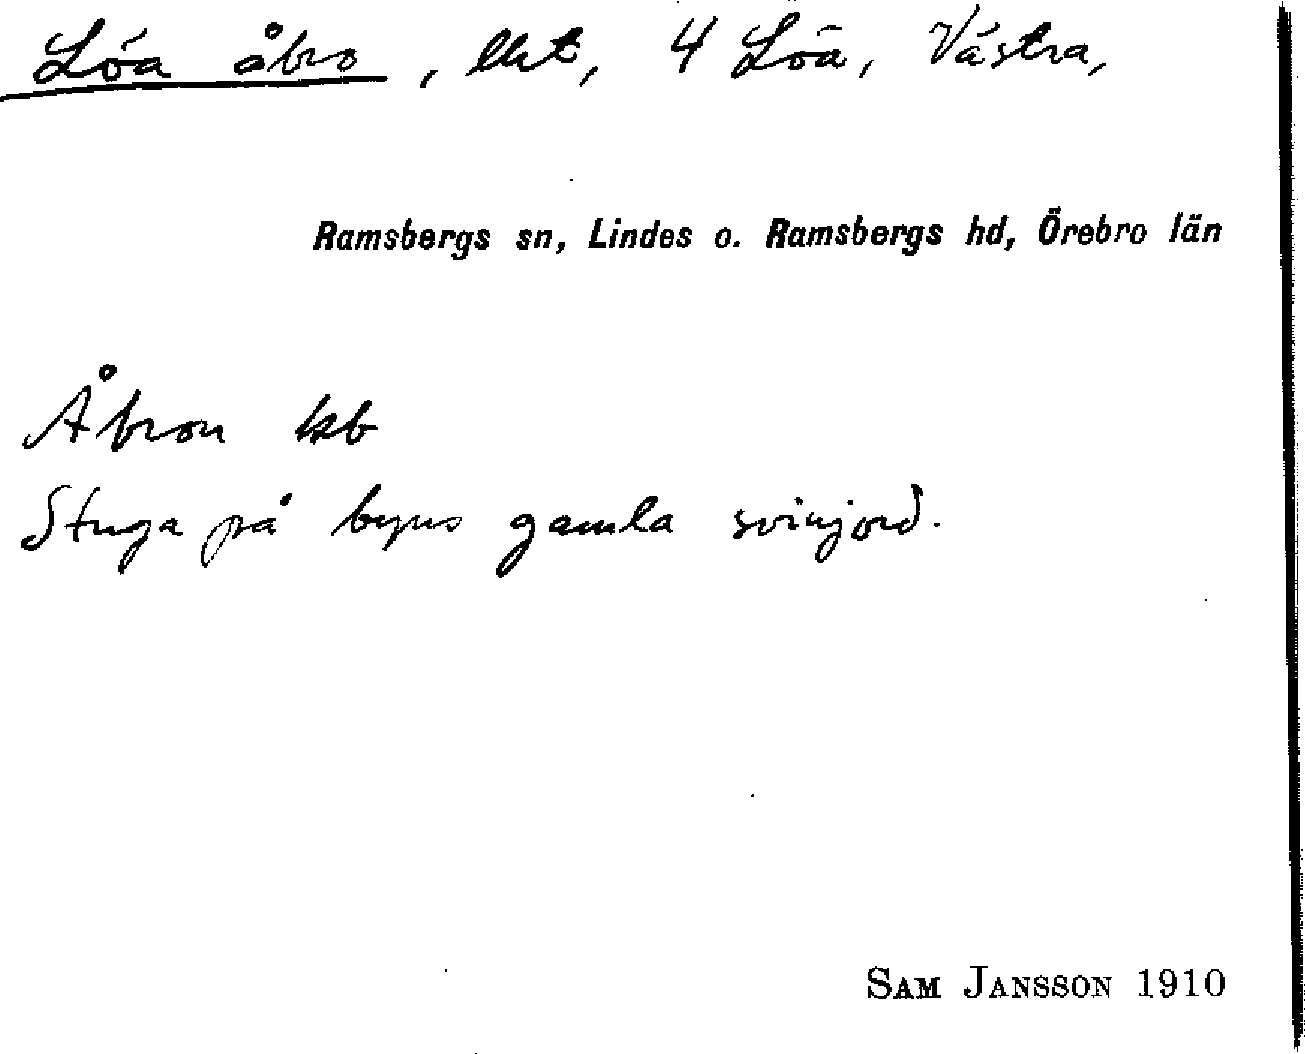 Löa åbro, lht, 4 Löa, Västra,
Ramsbergs sn, Lindes o. Ramsbergs hd, Örebro län
Åbron kb
Stuga på byns gamla svinjord.
SAM JANSSON 1910